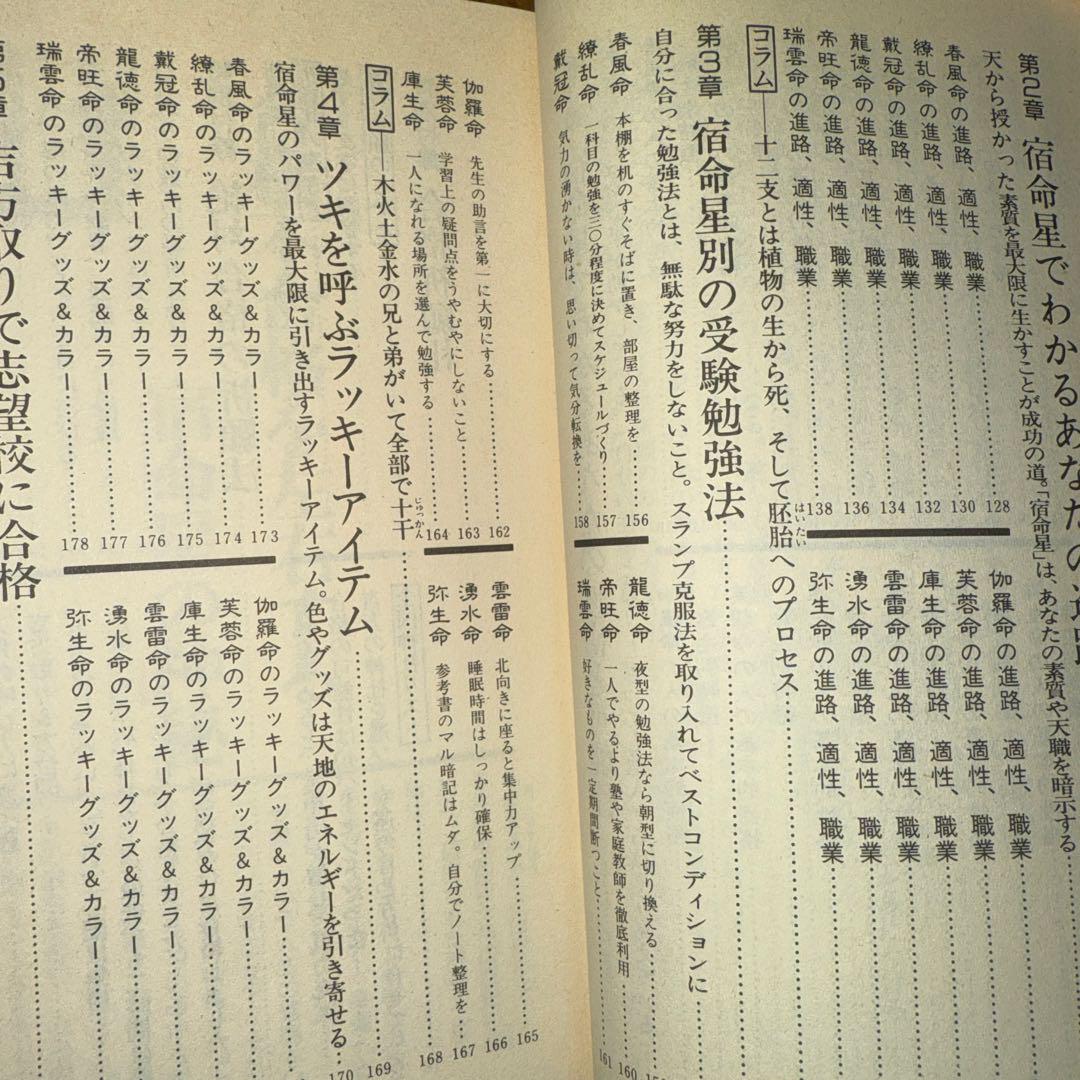 第2章 宿命星でわかるあなたの進路
天から授かった素質を最大限に生かすことが成功の道。「宿命星」は、あなたの素質や天職を暗示する
春風命の進路、適性、職業 128
繚乱命の進路、適性、職業 130
戴冠命の進路、適性、職業 132
龍徳命の進路、適性、職業 134
帝旺命の進路、適性、職業 136
瑞雲命の進路、適性、職業 138
伽羅命の進路、適性、職業
芙蓉命の進路、適性、職業
庫生命の進路、適性、職業
雲雷命の進路、適性、職業
湧水命の進路、適性、職業
弥生命の進路、適性、職業
コラム――十二支とは植物の生から死、そして胚胎へのプロセス
はいたい
第3章 宿命星別の受験勉強法
自分に合った勉強法とは、無駄な努力をしないこと。スランプ克服法を取り入れてベストコンディションに
春風命 本棚を机のすぐそばに置き、部屋の整理を 156
繚乱命 一科目の勉強を三〇分程度に決めてスケジュールづくり 157
戴冠命 気力の湧かない時は、思い切って気分転換を 158
龍徳命 夜型の勉強法なら朝型に切り換える
帝旺命 一人でやるより塾や家庭教師を徹底利用 160
瑞雲命 好きなものを一定期間断つこと 161
伽羅命 先生の助言を第一に大切にする 162
芙蓉命 学習上の疑問点をうやむやにしないこと 163
庫生命 一人になれる場所を選んで勉強する 164
雲雷命 北向きに座ると集中力アップ 165
湧水命 睡眠時間はしっかり確保 166
弥生命 参考書のマル暗記はムダ。自分でノート整理を 167
コラム――木火土金水の兄と弟がいて全部で十干 168
じゅっかん
第4章 ツキを呼ぶラッキーアイテム 169
宿命星のパワーを最大限に引き出すラッキーアイテム。色やグッズは天地のエネルギーを引き寄せる 170
春風命のラッキーグッズ&カラー 173
繚乱命のラッキーグッズ&カラー 174
戴冠命のラッキーグッズ&カラー 175
龍徳命のラッキーグッズ&カラー 176
帝旺命のラッキーグッズ&カラー 177
瑞雲命のラッキーグッズ&カラー 178
伽羅命のラッキーグッズ&カラー
芙蓉命のラッキーグッズ&カラー
庫生命のラッキーグッズ&カラー
雲雷命のラッキーグッズ&カラー
湧水命のラッキーグッズ&カラー
弥生命のラッキーグッズ&カラー
第5章 吉方取りで志望校に合格